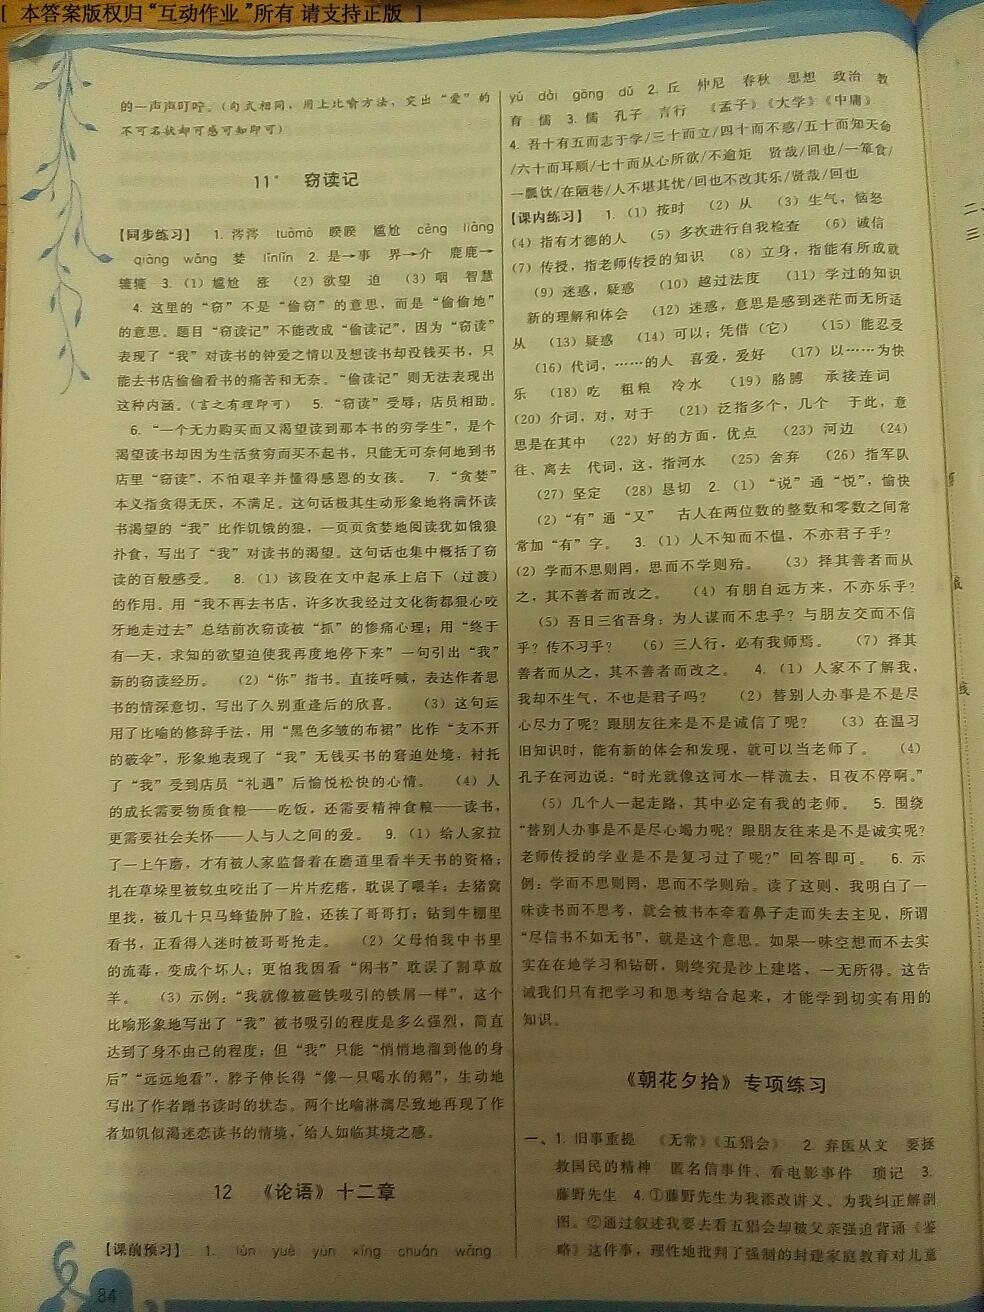 [ 本答案版权归“互动作业”所有 请支持正版 ]
的一声声叮咛。(句式相同,用上比喻方法,突出“爱”的
不可名状却可感可知即可)
11* 窃读记
【同步练习】 1. 滂滂 tuōmō 暌暌 尴尬 cèng liàng
qiàng wǎng 婪 līnlīn 2. 是→事 界→介 鹿鹿→
辘辘 3. (1) 尴尬 涨 (2) 欲望 迫 (3) 咽 智慧
4. 这里的“窃”不是“偷窃”的意思,而是“偷偷地”
的意思。题目“窃读记”不能改成“偷读记”,因为“窃读”
表现了“我”对读书的钟爱之情以及想读书却没钱买书,只
能去书店偷偷看书的痛苦和无奈。“偷读记”则无法表现出
这种内涵。(言之有理即可) 5. “窃读”受辱;店员相助。
6. “一个无力购买而又渴望读到那本书的穷学生”,是个
渴望读书却因为生活贫穷而买不起书,只能无可奈何地到书
店里“窃读”,不怕艰辛并懂得感恩的女孩。 7. “贪婪”
本义指贪得无厌,不满足。这句话极其生动形象地将满怀读
书渴望的“我”比作饥饿的狼,一页页贪婪地阅读犹如饿狼
扑食,写出了“我”对读书的渴望。这句话也集中概括了窃
读的百般感受。 8. (1) 该段在文中起承上启下 (过渡)
的作用。用“我不再去书店,许多次我经过文化街都狠心咬
牙地走过去”总结前次窃读被“抓”的惨痛心理;用“终于
有一天,求知的欲望迫使我再度地停下来”一句引出“我”
新的窃读经历。 (2)“你”指书。直接呼喊,表达作者思
书的情深意切,写出了久别重逢后的欣喜。 (3) 这句运
用了比喻的修辞手法,用“黑色多皱的布裙”比作“支不开
的破伞”,形象地表现了“我”无钱买书的窘迫处境,衬托
了“我”受到店员“礼遇”后愉悦松快的心情。 (4) 人
的成长需要物质食粮——吃饭,还需要精神食粮——读书,
更需要社会关怀——人与人之间的爱。 9. (1) 给人家拉
了一上午磨,才有被人家监督着在磨道里看半天书的资格;
扎在草垛里被蚊虫咬出了一片片疙瘩,耽误了喂羊;去猪窝
里找,被几十只马蜂蛰肿了脸,还挨了哥哥打;钻到牛棚里
看书,正看得入迷时被哥哥抢走。 (2) 父母怕我中书里
的流毒,变成个坏人;更怕我因看“闲书”耽误了割草放
羊。 (3) 示例:“我就像被磁铁吸引的铁屑一样”,这个
比喻形象地写出了“我”被书吸引的程度是多么强烈,简直
达到了身不由己的程度;但“我”只能“悄悄地溜到他的身
后”“远远地看”,脖子伸长得“像一只喝水的鹅”,生动地
写出了作者蹭书读时的状态。两个比喻淋漓尽致地再现了作
者如饥似渴迷恋读书的情境,给人如临其境之感。
12 《论语》十二章
【课前预习】 1. lún yuè yùn xǐng chuán wǎng
84
yú dài gōng dǔ 2. 丘 仲尼 春秋 思想 政治 教
育 儒 3. 儒 孔子 言行 《孟子》《大学》《中庸》
4. 吾十有五而志于学/三十而立/四十而不惑/五十而知天命
/六十而耳顺/七十而从心所欲/不逾矩 贤哉/回也/一箪食/
一瓢饮/在陋巷/人不堪其忧/回也不改其乐/贤哉/回也
【课内练习】 1. (1) 按时 (2) 从 (3) 生气,恼怒
(4) 指有才德的人 (5) 多次进行自我检查 (6) 诚信
(7) 传授,指老师传授的知识 (8) 立身,指能有所成就
(9) 迷惑,疑惑 (10) 越过法度 (11) 学过的知识
新的理解和体会 (12) 迷惑,意思是感到迷茫而无所适
从 (13) 疑惑 (14) 可以;凭借(它) (15) 能忍受
(16) 代词,……的人 喜爱,爱好 (17) 以……为快
乐 (18) 吃 粗粮 冷水 (19) 胳膊 承接连词
(20) 介词,对,对于 (21) 泛指多个,几个 于此,意
思是在其中 (22) 好的方面,优点 (23) 河边 (24)
往、离去 代词,这,指河水 (25) 舍弃 (26) 指军队
(27) 坚定 (28) 恳切 2. (1)“说”通“悦”,愉快
(2)“有”通“又” 古人在两位数的整数和零数之间常
常加“有”字。 3. (1) 人不知而不愠,不亦君子乎?
(2) 学而不思则罔,思而不学则殆。 (3) 择其善者而从
之,其不善者而改之。 (4) 有朋自远方来,不亦乐乎?
(5) 吾日三省吾身:为人谋而不忠乎?与朋友交而不信
乎?传不习乎? (6) 三人行,必有我师焉。 (7) 择其
善者而从之,其不善者而改之。 4. (1) 人家不了解我,
我却不生气,不也是君子吗? (2) 替别人办事是不是尽
心尽力了呢?跟朋友往来是不是诚信了呢? (3) 在温习
旧知识时,能有新的体会和发现,就可以当老师了。 (4)
孔子在河边说:“时光就像这河水一样流去,日夜不停啊。”
(5) 几个人一起走路,其中必定有我的老师。 5. 围绕
“替别人办事是不是尽心竭力呢?跟朋友往来是不是诚实呢?
老师传授的学业是不是复习过了呢?”回答即可。 6. 示
例:学而不思则罔,思而不学则殆。读了这则,我明白了一
味读书而不思考,就会被书本牵着鼻子走而失去主见,所谓
“尽信书不如无书”,就是这个意思。如果一味空想而不去实
实在在地学习和钻研,则终究是沙上建塔,一无所得。这告
诫我们只有把学习和思考结合起来,才能学到切实有用的
知识。
《朝花夕拾》专项练习
一、1. 旧事重提 《无常》《五猖会》 2. 弃医从文 要拯
救国民的精神 匿名信事件、看电影事件 琐记 3.
藤野先生 4. ①藤野先生为我添改讲义、为我纠正解剖
图。②通过叙述我要去看五猖会却被父亲强迫背诵《鉴
略》这件事,理性地批判了强制的封建家庭教育对儿童
二、
三